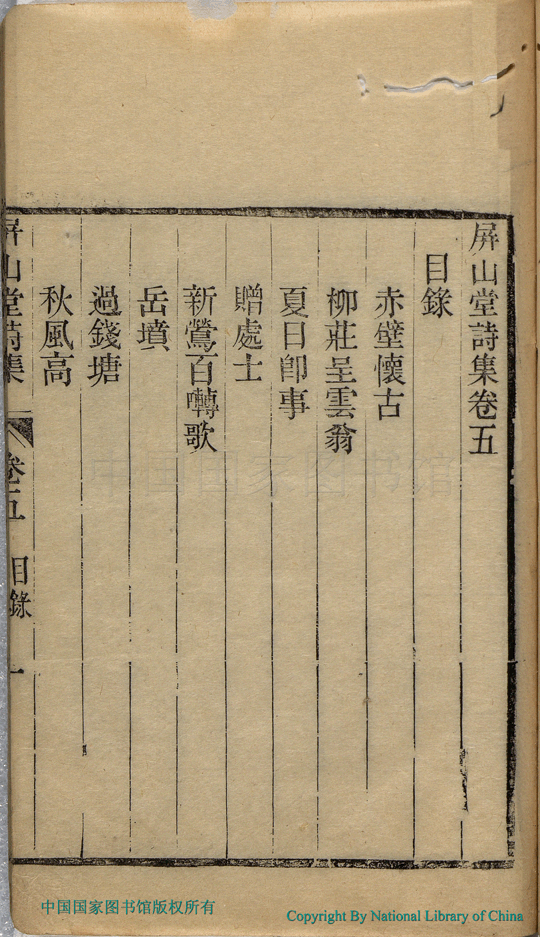 屏山堂詩集卷五
目錄
赤壁懷古
柳莊呈雲翁
夏日卽事
贈處士
新鶯百囀歌
岳墳
過錢塘
秋風高
屏山堂詩集 卷五 目錄 一
中国国家图书馆
中国国家图书馆版权所有
Copyright By National Library of China